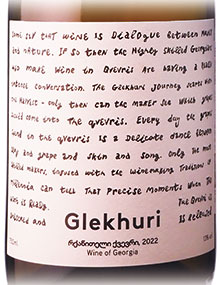 Some say that wine is dialogue between man
and nature. If so then the highly skilled Georgians
who make wine in qvevris are having a really
intense conversation. The Glekhuri journey starts with
the harvest - only then can the maker see which grapes
could come into the qvevris. Every day the grapes
and in the qvevris is a delicate dance between
and grape and skin and song. Only the most
skilled makers, infused with the winemaking tradition of
millennia can tell that precise moments when the
wine is ready. The qvevri is
unlocked and is
Glekhuri
რქაწითელი ქვევრი, 2022
Wine of Georgia